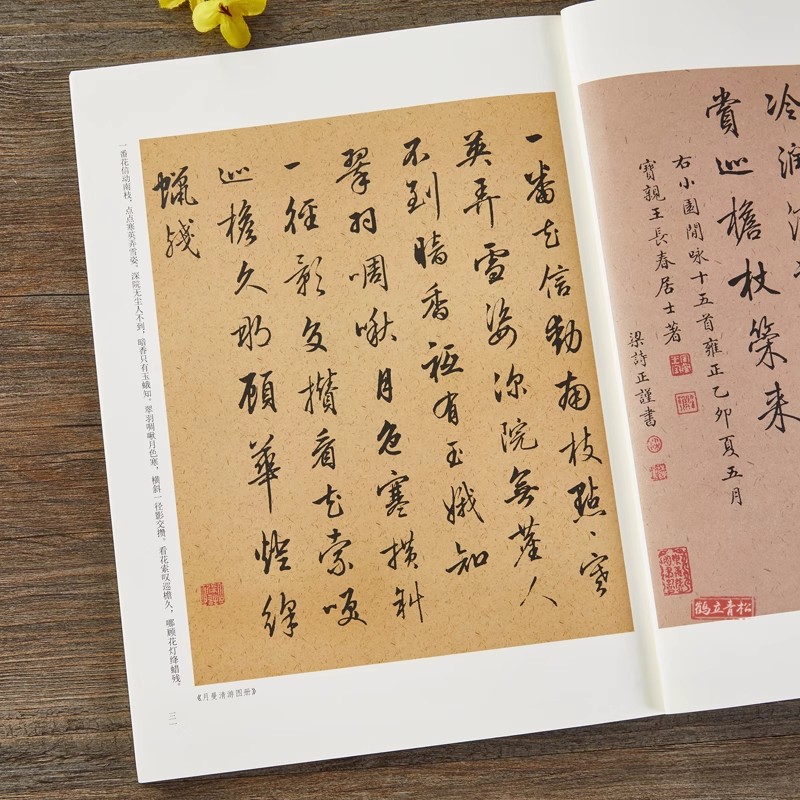 一番花信動南枝點、寒
英弄雪姿深院無塵人
不到暗香祗有玉蛾知
翠羽啁啾月色寒横斜
一徑影交攢看花索嘆
巡檐久那顧華燈絳
蠟殘
一番花信动南枝，点点寒英弄雪姿。深院无尘人不到，暗香只有玉蛾知。翠羽啁啾月色寒，横斜一径影交攒。看花索叹巡檐久，哪顾花灯绛蜡残。
《月曼清游图册》
三一
冷润
賞巡檐杖策来
右小園閒咏十五首雍正乙卯夏五月
寶親王長春居士著
梁詩正謹書
鹤立青松